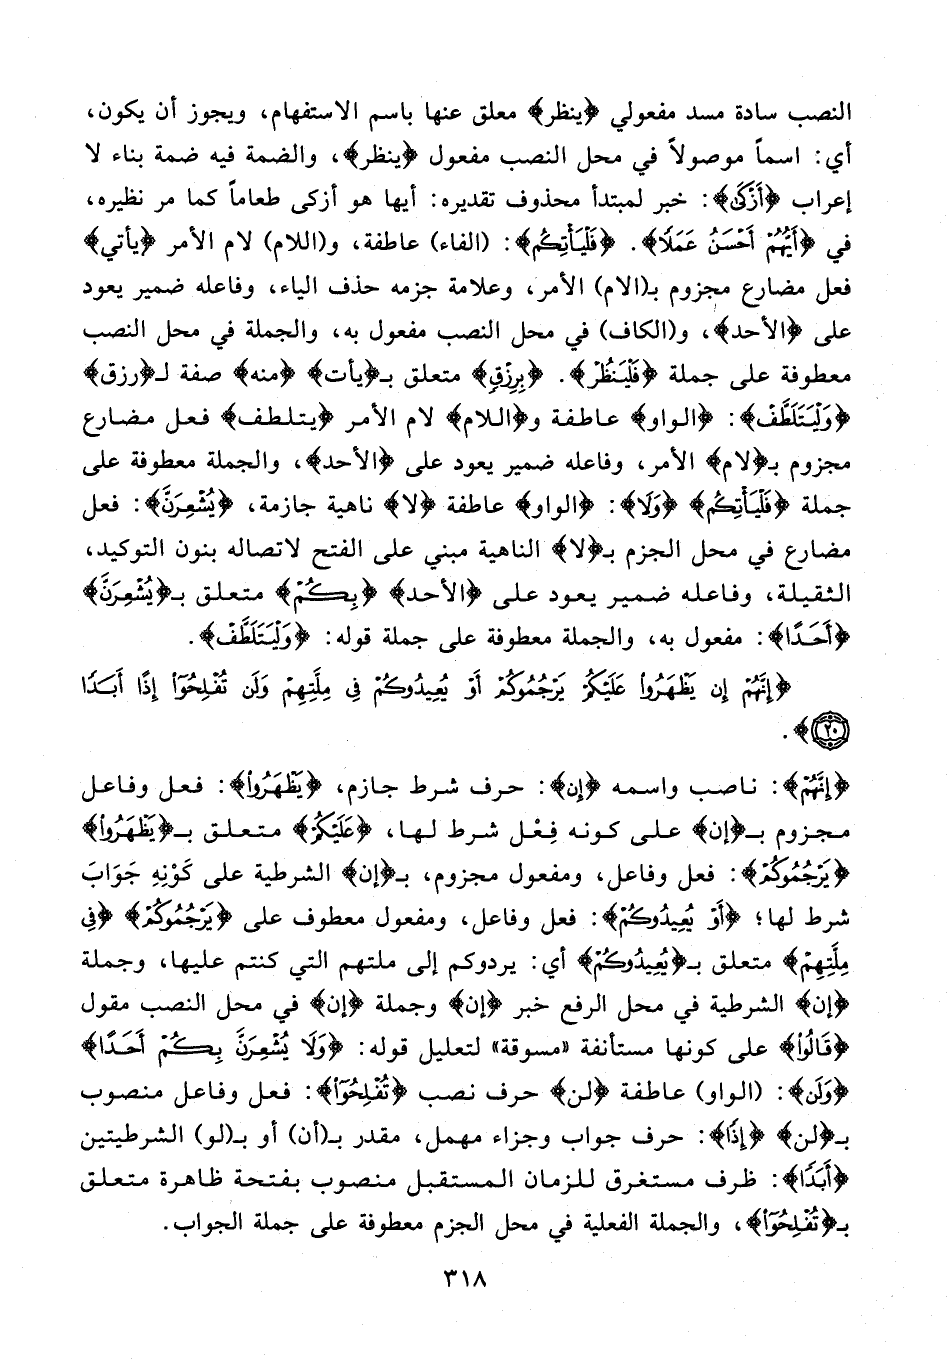 النصب سادة مسد مفعولي ﴿ينظر﴾ معلق عنها باسم الاستفهام، ويجوز أن يكون،
أي: اسماً موصولاً في محل النصب مفعول ﴿ينظر﴾، والضمة فيه ضمة بناء لا
إعراب ﴿أَزْكَى﴾: خبر لمبتدأ محذوف تقديره: أيها هو أزكى طعاماً كما مر نظيره،
في ﴿أَيُّهُمْ أَحْسَنُ عَمَلًا﴾. ﴿فَلْيَأْتِكُم﴾: (الفاء) عاطفة، و(اللام) لام الأمر ﴿يأتي﴾
فعل مضارع مجزوم بـ(الام) الأمر، وعلامة جزمه حذف الياء، وفاعله ضمير يعود
على ﴿الأحد﴾، و(الكاف) في محل النصب مفعول به، والجملة في محل النصب
معطوفة على جملة ﴿فَلْيَنظُرْ﴾. ﴿بِرِزْقٍ﴾ متعلق بـ﴿يأت﴾ ﴿منه﴾ صفة لـ﴿رزق﴾
﴿وَلْيَتَلَطَّفْ﴾: ﴿الواو﴾ عاطفة و﴿اللام﴾ لام الأمر ﴿يتلطف﴾ فعل مضارع
مجزوم بـ﴿لام﴾ الأمر، وفاعله ضمير يعود على ﴿الأحد﴾، والجملة معطوفة على
جملة ﴿فَلْيَأْتِكُم﴾ ﴿وَلَا﴾: ﴿الواو﴾ عاطفة ﴿لا﴾ ناهية جازمة، ﴿يُشْعِرَنَّ﴾: فعل
مضارع في محل الجزم بـ﴿لا﴾ الناهية مبني على الفتح لاتصاله بنون التوكيد،
الثقيلة، وفاعله ضمير يعود على ﴿الأحد﴾ ﴿بِكُمْ﴾ متعلق بـ﴿يُشْعِرَنَّ﴾
﴿أَحَدًا﴾: مفعول به، والجملة معطوفة على جملة قوله: ﴿وَلْيَتَلَطَّفْ﴾.
﴿إِنَّهُمْ إِن يَظْهَرُوا عَلَيْكُمْ يَرْجُمُوكُمْ أَوْ يُعِيدُوكُمْ فِي مِلَّتِهِمْ وَلَن تُفْلِحُوٓا إِذًا أَبَدًا
٢٠﴾.
﴿إِنَّهُمْ﴾: ناصب واسمه ﴿إِن﴾: حرف شرط جازم، ﴿يَظْهَرُوا﴾: فعل وفاعل
مجزوم بـ﴿إن﴾ على كونه فِعْل شرط لها، ﴿عَلَيْكُمْ﴾ متعلق بـ﴿يَظْهَرُوا﴾
﴿يَرْجُمُوكُمْ﴾: فعل وفاعل، ومفعول مجزوم، بـ﴿إن﴾ الشرطية على كَوْنِهِ جَوَابَ
شرط لها؛ ﴿أَوْ يُعِيدُوكُمْ﴾: فعل وفاعل، ومفعول معطوف على ﴿يَرْجُمُوكُمْ﴾ ﴿فِي
مِلَّتِهِمْ﴾ متعلق بـ﴿يُعِيدُوكُمْ﴾ أي: يردوكم إلى ملتهم التي كنتم عليها، وجملة
﴿إن﴾ الشرطية في محل الرفع خبر ﴿إن﴾ وجملة ﴿إن﴾ في محل النصب مقول
﴿قَالُوا﴾ على كونها مستأنفة «مسوقة» لتعليل قوله: ﴿وَلَا يُشْعِرَنَّ بِكُمْ أَحَدًا﴾
﴿وَلَن﴾: (الواو) عاطفة ﴿لن﴾ حرف نصب ﴿تُفْلِحُوٓا﴾: فعل وفاعل منصوب
بـ﴿لن﴾ ﴿إِذًا﴾: حرف جواب وجزاء مهمل، مقدر بـ(أن) أو بـ(لو) الشرطيتين
﴿أَبَدًا﴾: ظرف مستغرق للزمان المستقبل منصوب بفتحة ظاهرة متعلق
بـ﴿تُفْلِحُوٓا﴾، والجملة الفعلية في محل الجزم معطوفة على جملة الجواب.
٣١٨